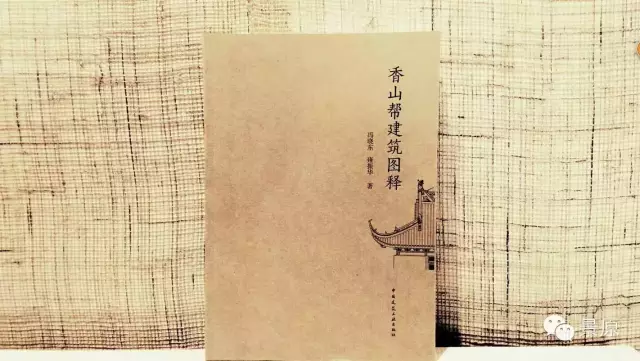 香山帮建筑图释
冯晓东 雍振华 著
中国建筑工业出版社